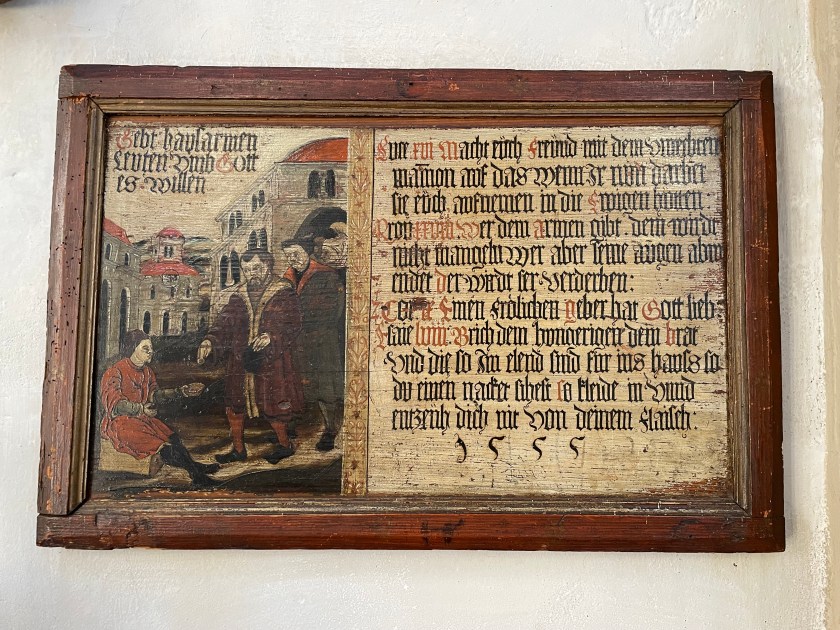 Gebt hausarmen
Leuten Vmb Gott
es Willen
Luce xvi Macht euch Freund mit dem Vnrechten
mamon auf das Wenn Jr nun darbet
sie euch aufnemen in die Ewigen hütten:
Prov xxviii Wer dem armen gibt dem wirdt
nicht mangeln Wer aber seine augen abw
endet der Wirdt ser Verderben:
2 Cor ix Einen Frölichen geber hat Gott lieb:
Esaie lviii Brich dem hongerigen dein brot
Vnd die so Jm elend sind für ins hauss so
du einen nacket sihest so kleide in Vnnd
entzeuh dich nit Von deinem Flaisch:
1555